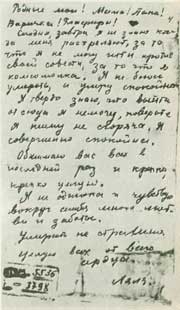 Родные мои! Мама! Папа!
Варичка! Гонцури!
Сегодня, завтра я не знаю ког-
да меня расстреляют за то
что я не могу идти против
своей совести, за то что я
комсомолка. Я не боюсь
умирать, и умру спокойно.
Я твердо знаю, что выйти
отсюда я немогу, поверьте
я пишу не сгоряча, я
совершенно спокойна.
Обнимаю вас всех
последний раз и крепко,
крепко целую.
Я не одинока и чувствую
вокруг себя много люб-
ви и заботы.
Умирать не страшно.
целую всех от всего
сердца.
Ляля.